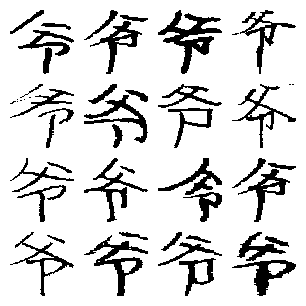 爷爷爷爷
爷爷爷爷
爷爷爷爷
爷爷爷爷